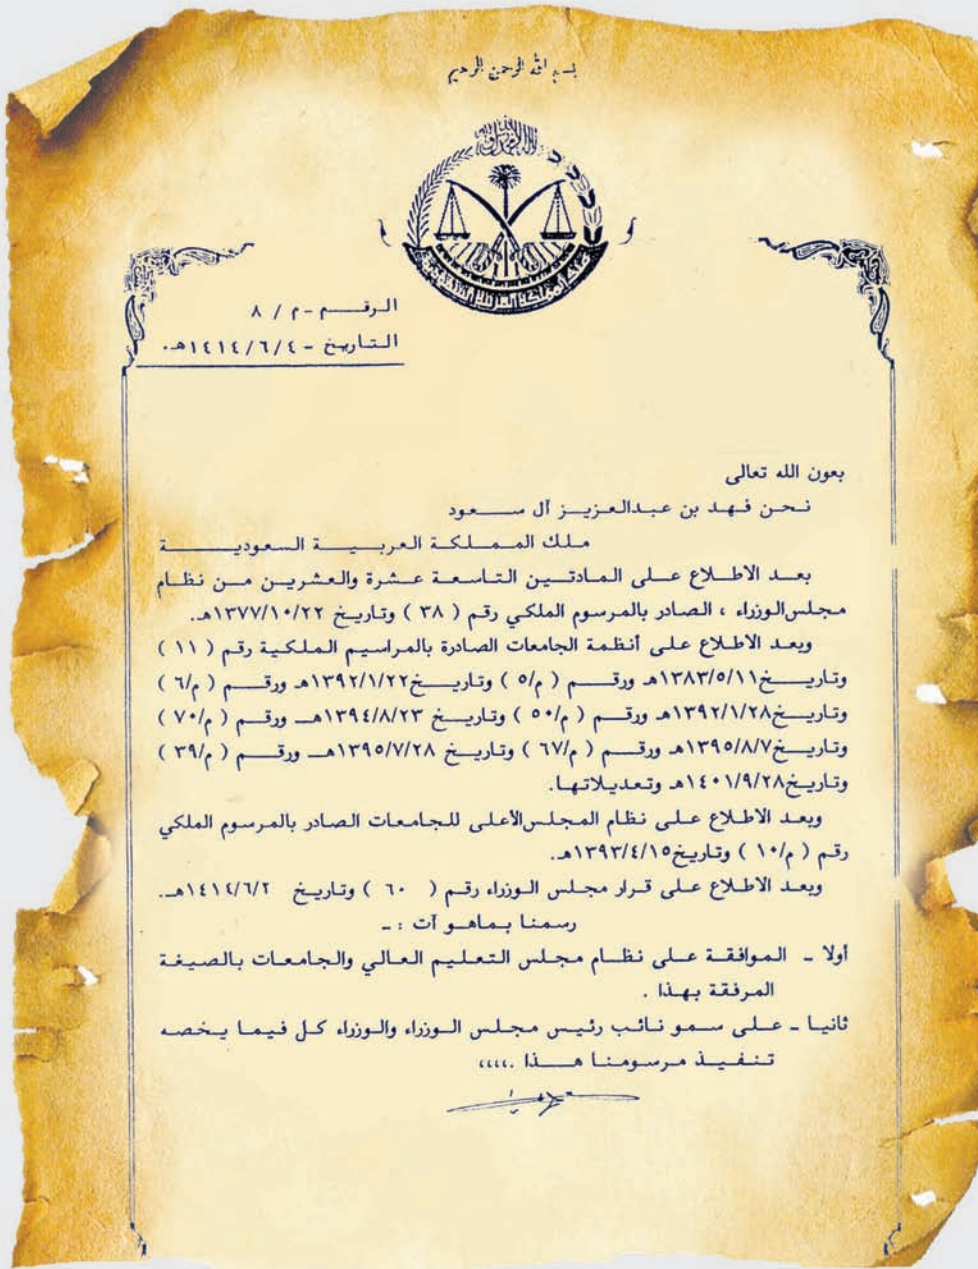 بسم الله الرحمن الرحيم
الرقـــــم - م / ٨
التاريخ - ١٤١٤/٦/٤هـ.
بعون الله تعالى
نحن فهد بن عبدالعزيز آل سعود
ملك المملكة العربية السعودية
بعد الاطلاع على المادتين التاسعة عشرة والعشرين من نظام
مجلس الوزراء ، الصادر بالمرسوم الملكي رقم ( ٣٨ ) وتاريخ ١٣٧٧/١٠/٢٢هـ.
وبعد الاطلاع على أنظمة الجامعات الصادرة بالمراسيم الملكية رقم ( ١١ )
وتاريخ١٣٨٣/٥/١١هـ ورقم ( م/٥ ) وتاريخ١٣٩٢/١/٢٢هـ ورقم ( م/٦ )
وتاريخ١٣٩٢/١/٢٨هـ ورقم ( م/٥٠ ) وتاريخ ١٣٩٤/٨/٢٣هـ ورقم ( م/٧٠ )
وتاريخ١٣٩٥/٨/٧هـ ورقم ( م/٦٧ ) وتاريخ ١٣٩٥/٧/٢٨هـ ورقم ( م/٣٩ )
وتاريخ١٤٠١/٩/٢٨هـ وتعديلاتها.
وبعد الاطلاع على نظام المجلس الأعلى للجامعات الصادر بالمرسوم الملكي
رقم ( م/١٠ ) وتاريخ١٣٩٣/٤/١٥هـ.
وبعد الاطلاع على قرار مجلس الوزراء رقم ( ٦٠ ) وتاريخ ١٤١٤/٦/٢هـ.
رسمنا بماهو آت : ـ
أولا ـ الموافقة على نظام مجلس التعليم العالي والجامعات بالصيغة
المرفقة بهذا .
ثانيا ـ على سمو نائب رئيس مجلس الوزراء والوزراء كل فيما يخصه
تنفيذ مرسومنا هذا .،،،،